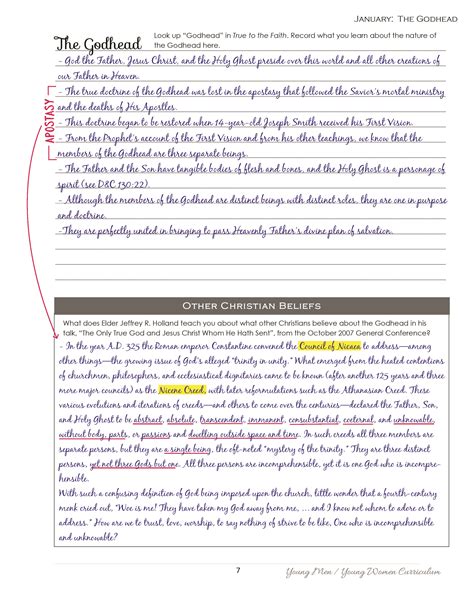 January: The Godhead
The Godhead
Look up “Godhead” in True to the Faith. Record what you learn about the nature of
the Godhead here.
- God the Father, Jesus Christ, and the Holy Ghost preside over this world and all other creations of
our Father in Heaven.
- The true doctrine of the Godhead was lost in the apostasy that followed the Savior's mortal ministry
and the deaths of His Apostles.
- This doctrine began to be restored when 14-year-old Joseph Smith received his First Vision.
- From the Prophet's account of the First Vision and from his other teachings, we know that the
members of the Godhead are three separate beings.
APOSTASY
- The Father and the Son have tangible bodies of flesh and bones, and the Holy Ghost is a personage of
spirit (see D&C 130:22).
- Although the members of the Godhead are distinct beings with distinct roles, they are one in purpose
and doctrine.
-They are perfectly united in bringing to pass Heavenly Father's divine plan of salvation.
Other Christian Beliefs
What does Elder Jeffrey R. Holland teach you about what other Christians believe about the Godhead in his
talk, “The Only True God and Jesus Christ Whom He Hath Sent”, from the October 2007 General Conference?
- In the year A.D. 325 the Roman emperor Constantine convened the Council of Nicaea to address—among
other things—the growing issue of God's alleged “trinity in unity.” What emerged from the heated contentions
of churchmen, philosophers, and ecclesiastical dignitaries came to be known (after another 125 years and three
more major councils) as the Nicene Creed, with later reformulations such as the Athanasian Creed. These
various evolutions and iterations of creeds—and others to come over the centuries—declared the Father, Son,
and Holy Ghost to be abstract, absolute, transcendent, immanent, consubstantial, coeternal, and unknowable,
without body, parts, or passions and dwelling outside space and time. In such creeds all three members are
separate persons, but they are a single being, the oft-noted “mystery of the trinity.” They are three distinct
persons, yet not three Gods but one. All three persons are incomprehensible, yet it is one God who is incompre-
hensible.
With such a confusing definition of God being imposed upon the church, little wonder that a fourth-century
monk cried out, “Woe is me! They have taken my God away from me, ... and I know not whom to adore or to
address.” How are we to trust, love, worship, to say nothing of strive to be like, One who is incomprehensible
and unknowable?
7
Young Men / Young Women Curriculum